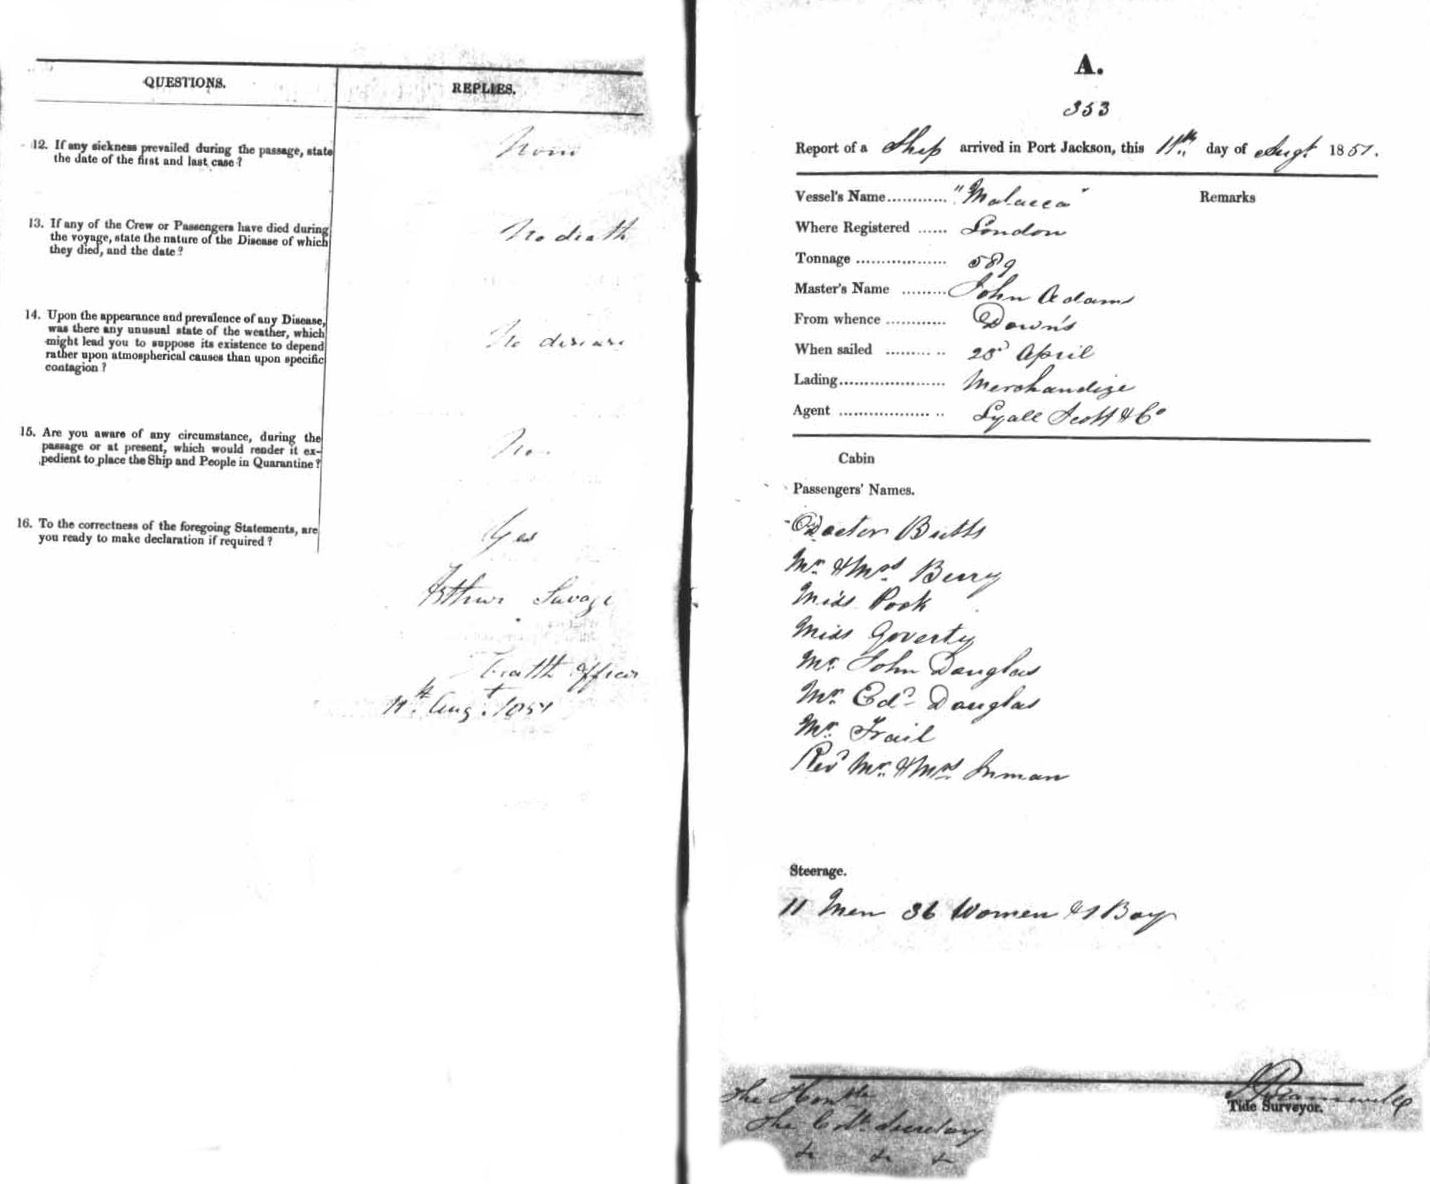 QUESTIONS. REPLIES.
12. If any sickness prevailed during the passage, state
the date of the first and last case?
None
13. If any of the Crew or Passengers have died during
the voyage, state the nature of the Disease of which
they died, and the date?
No death
14. Upon the appearance and prevalence of any Disease,
was there any unusual state of the weather, which
might lead you to suppose its existence to depend
rather upon atmospherical causes than upon specific
contagion?
No disease
15. Are you aware of any circumstance, during the
passage or at present, which would render it ex-
pedient to place the Ship and People in Quarantine?
No
16. To the correctness of the foregoing Statements, are
you ready to make declaration if required?
Yes
Arthur Savage
Health Officer
11th Augt. 1851
A.
353
Report of a Ship arrived in Port Jackson, this 11th day of Augt 1851.
Vessel's Name............ "Malacca" Remarks
Where Registered ...... London
Tonnage .................. 589
Master's Name ......... John Adams
From whence ............ Down's
When sailed ......... .. 25 April
Lading..................... Merchandize
Agent .................. .. Lyall Scott & Co
Cabin
Passengers' Names.
Doctor Butts
Mr. & Mrs Berry
Miss Pook
Miss Goverty
Mr. John Douglas
Mr. Edd. Douglas
Mr. Frail
Revd Mr. & Mrs Inman
Steerage.
11 Men 36 Women & 1 Boy
Tide Surveyor.
The Honble
The Coll Secretary
& & &